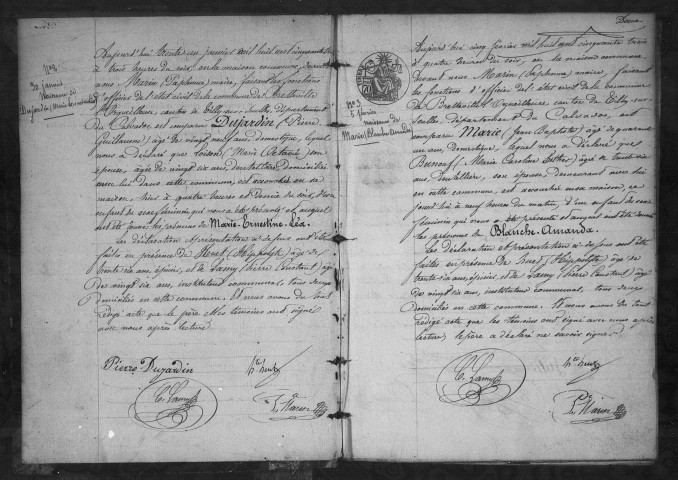 N° 2
30 janvier
Naissance de
Dujardin (Marie Ernestine Léa)
Aujourd'hui trente un janvier mil huit cent cinquante trois
à trois heures du soir, en la maison commune, devant
nous Marin (Paphonse) maire, faisant les fonctions
d'officier de l'état civil de la commune de
canton de Tilly sur Seulles, département
du Calvados est comparu Dujardin (Pierre
Guillaume) âgé de vingt neuf ans, domestique, lequel
nous a déclaré que Loison, (Marie Octavie) son
épouse, âgée de vingt six ans, dentellière, domiciliée
avec lui dans cette commune, est accouchée en sa
maison, hier à quatre heures et demie du soir, d'un
enfant de sexe féminin qui nous a été présenté et auquel
ont été donnés les prénoms de Marie-Ernestine-Léa.
Les déclaration et présentation ci-dessus ont été
faites en présence de Huet (Hippolyte) âgé de
trente six ans, épicier, et de Lamy (Pierre Constant) âgé
de vingt six ans, instituteur communal, tous deux
domiciliés en cette commune. Et nous avons du tout
rédigé acte que le père et les témoins ont signé
avec nous après lecture.
Pierre Dujardin
C. Lamy
P. Marin
N° 3
5 février
naissance de
Marie (Blanche Amanda)
Aujourd'hui cinq février mil huit cent cinquante trois
à quatre heures du soir, en la maison commune
devant nous Marin (Paphonse) maire faisant
les fonctions d'officier de l'état civil de la commune
canton de Tilly sur
Seulles, département du Calvados, est
comparu Marie (Jean Baptiste) âgé de quarante
un ans, domestique, lequel nous a déclaré que
(Marie Caroline Esther) âgée de trente six
ans, dentellière, son épouse, demeurant avec lui
en cette commune, est accouchée en sa maison, ce
jourd'hui à neuf heures du matin, d'un enfant de sexe
féminin qui nous a été présenté et auquel ont été donnés
les prénoms de Blanche-Amanda.
Les déclaration et présentation ci-dessus ont été
faites en présence de Huet (Hippolyte) âgé de
trente six ans, épicier, et de Lamy (Pierre Constant) âgé
de vingt six ans, instituteur communal, tous deux
domiciliés en cette commune. Et nous avons du tout
rédigé acte que les témoins ont signé avec nous après
lecture, le père a déclaré ne savoir signer.
C. Lamy
P. Marin